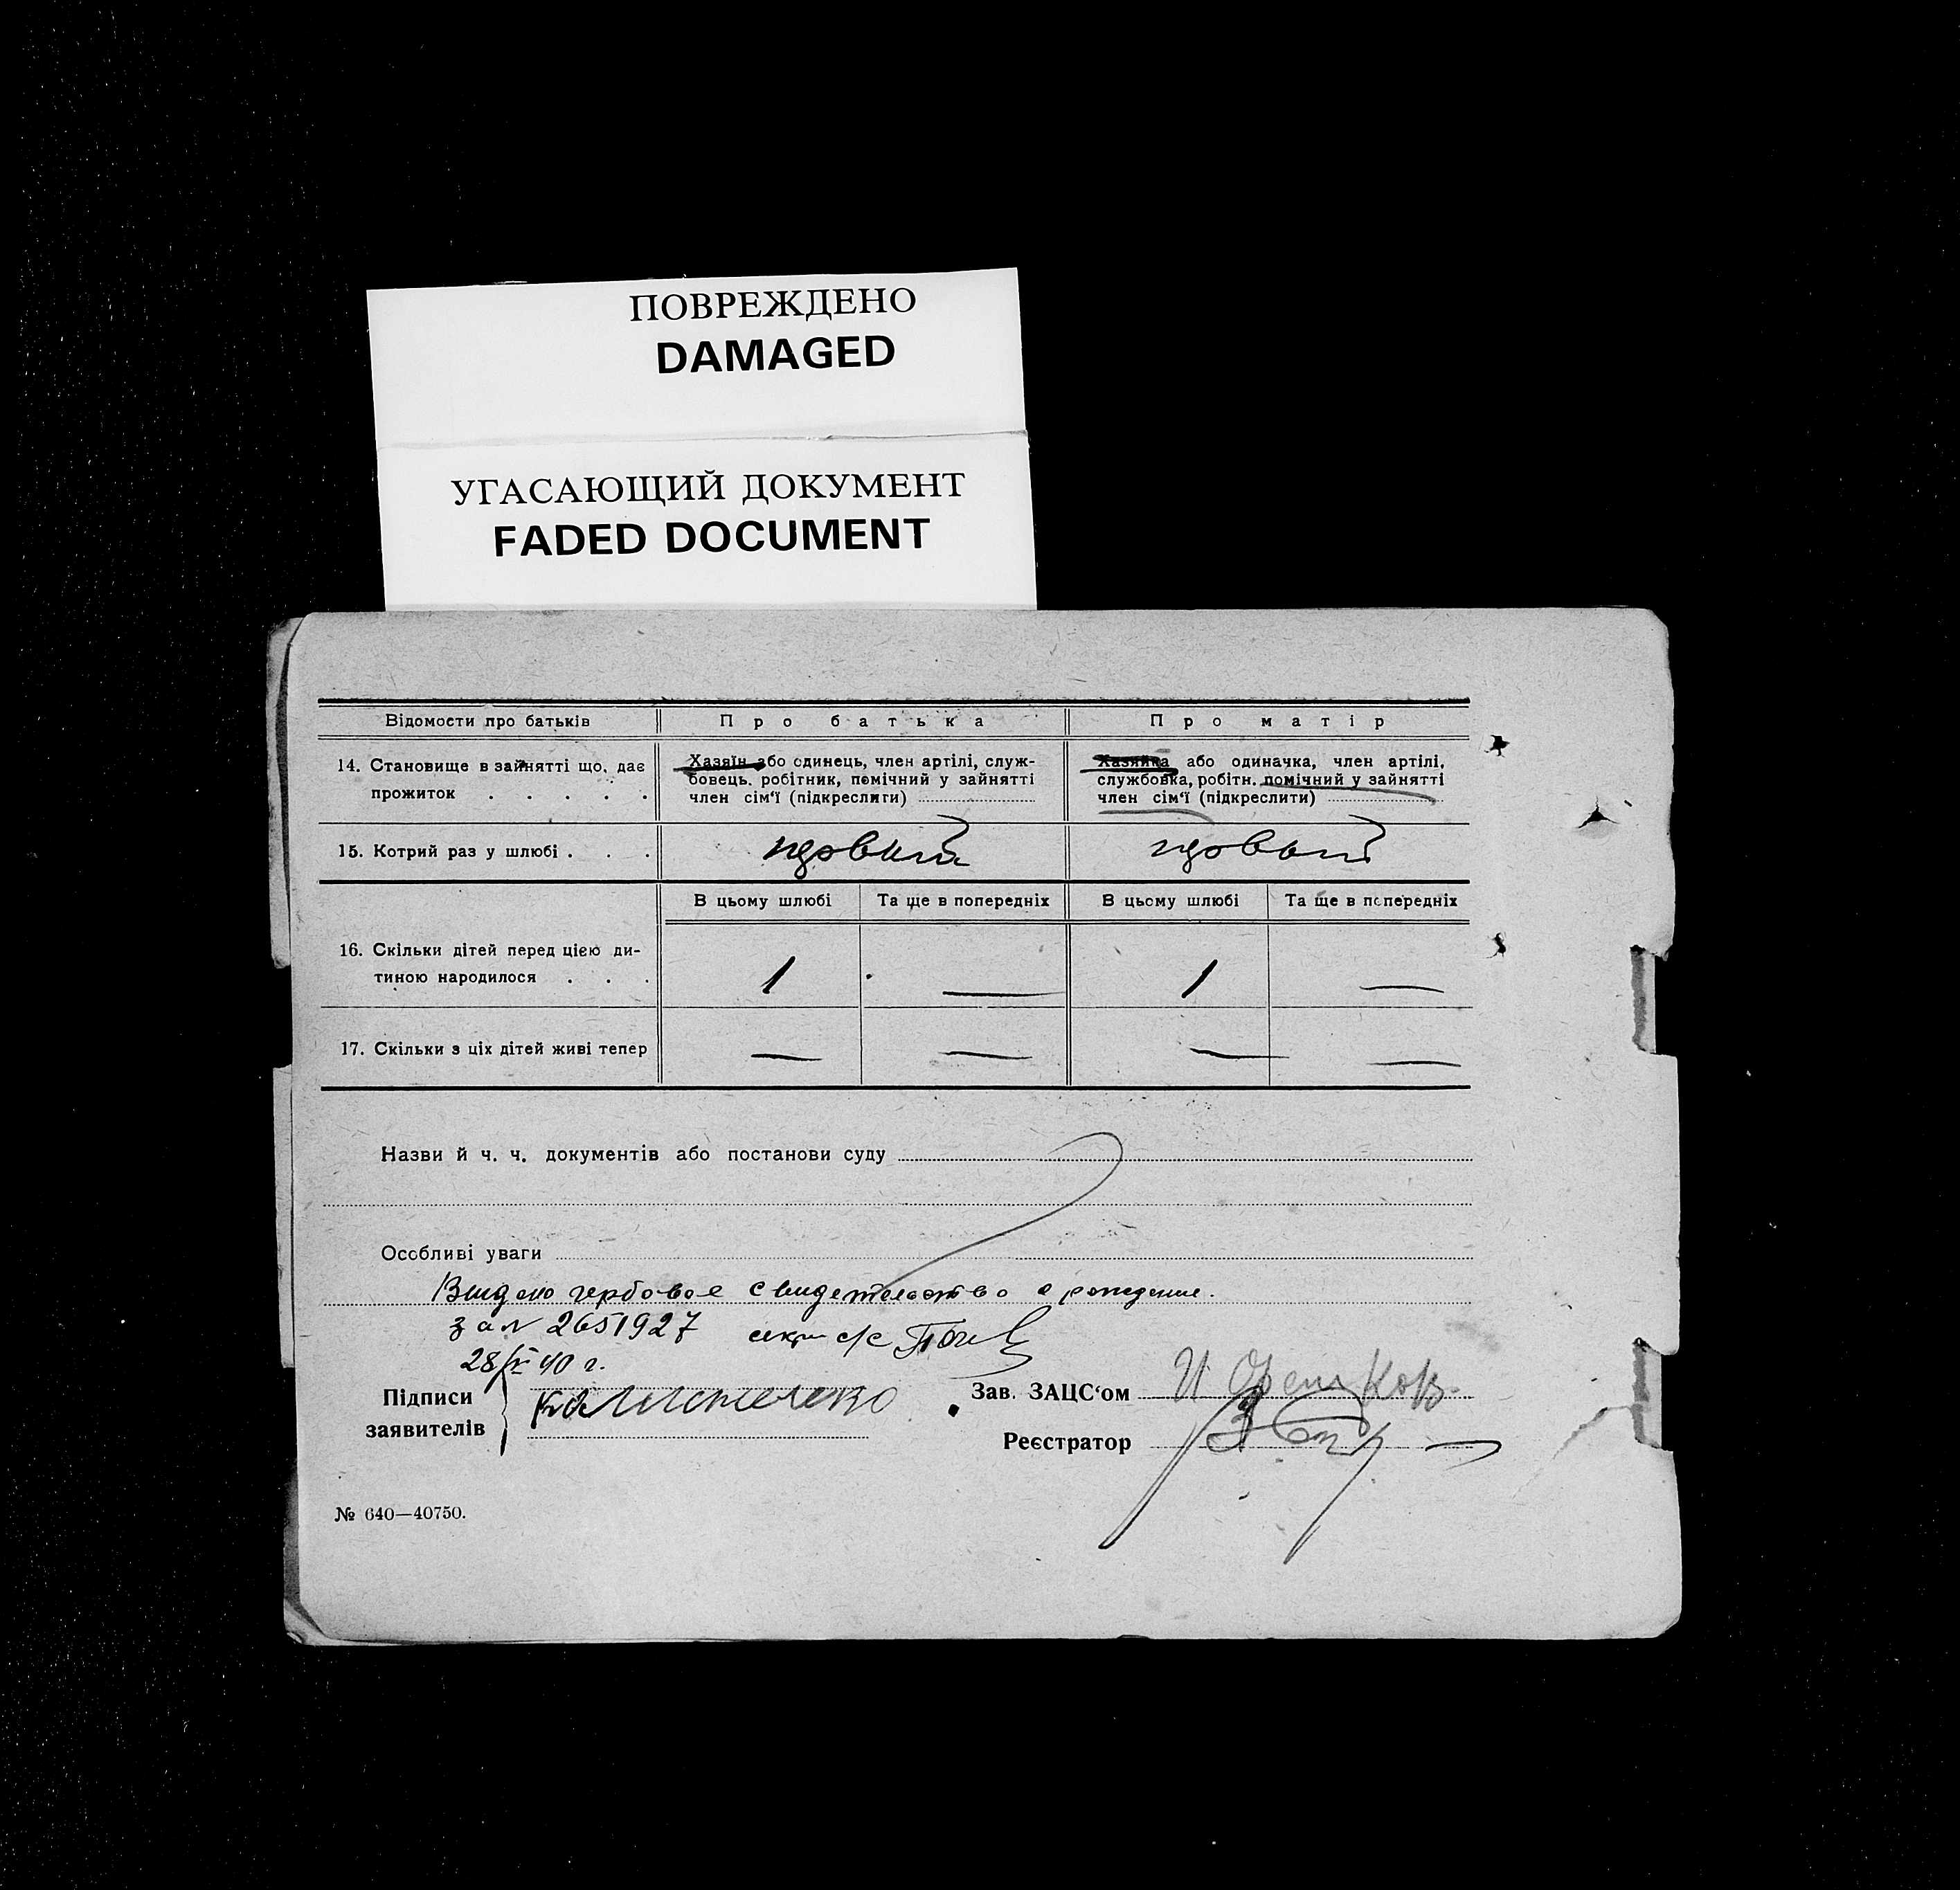 ПОВРЕЖДЕНО
DAMAGED
УГАСАЮЩИЙ ДОКУМЕНТ
FADED DOCUMENT
Відомости про батьків
Про батька
Про матір
14. Становище в зайнятті що, дає
прожиток . . . . .
Хазяїн або одинець, член артілі, служ-
бовець, робітник, помічний у зайнятті
член сім'ї (підкреслити)
Хазяйка або одиначка, член артілі,
службовка, робітн. помічний у зайнятті
член сім'ї (підкреслити)
15. Котрий раз у шлюбі . . .
первый
первый
В цьому шлюбі
Та ще в попередніх
В цьому шлюбі
Та ще в попередніх
16. Скільки дітей перед цією ди-
тиною народилося . . .
1
—
1
—
17. Скільки з ціх дітей живі тепер
—
—
—
—
Назви й ч. ч. документів або постанови суду
Особливі уваги
Выдано гербовое свидетельство о рождении.
за № 2651927 секр с/с
28/ 40 г.
Підписи
заявителів
Зав. ЗАЦС'ом
Реєстратор
№ 640—40750.